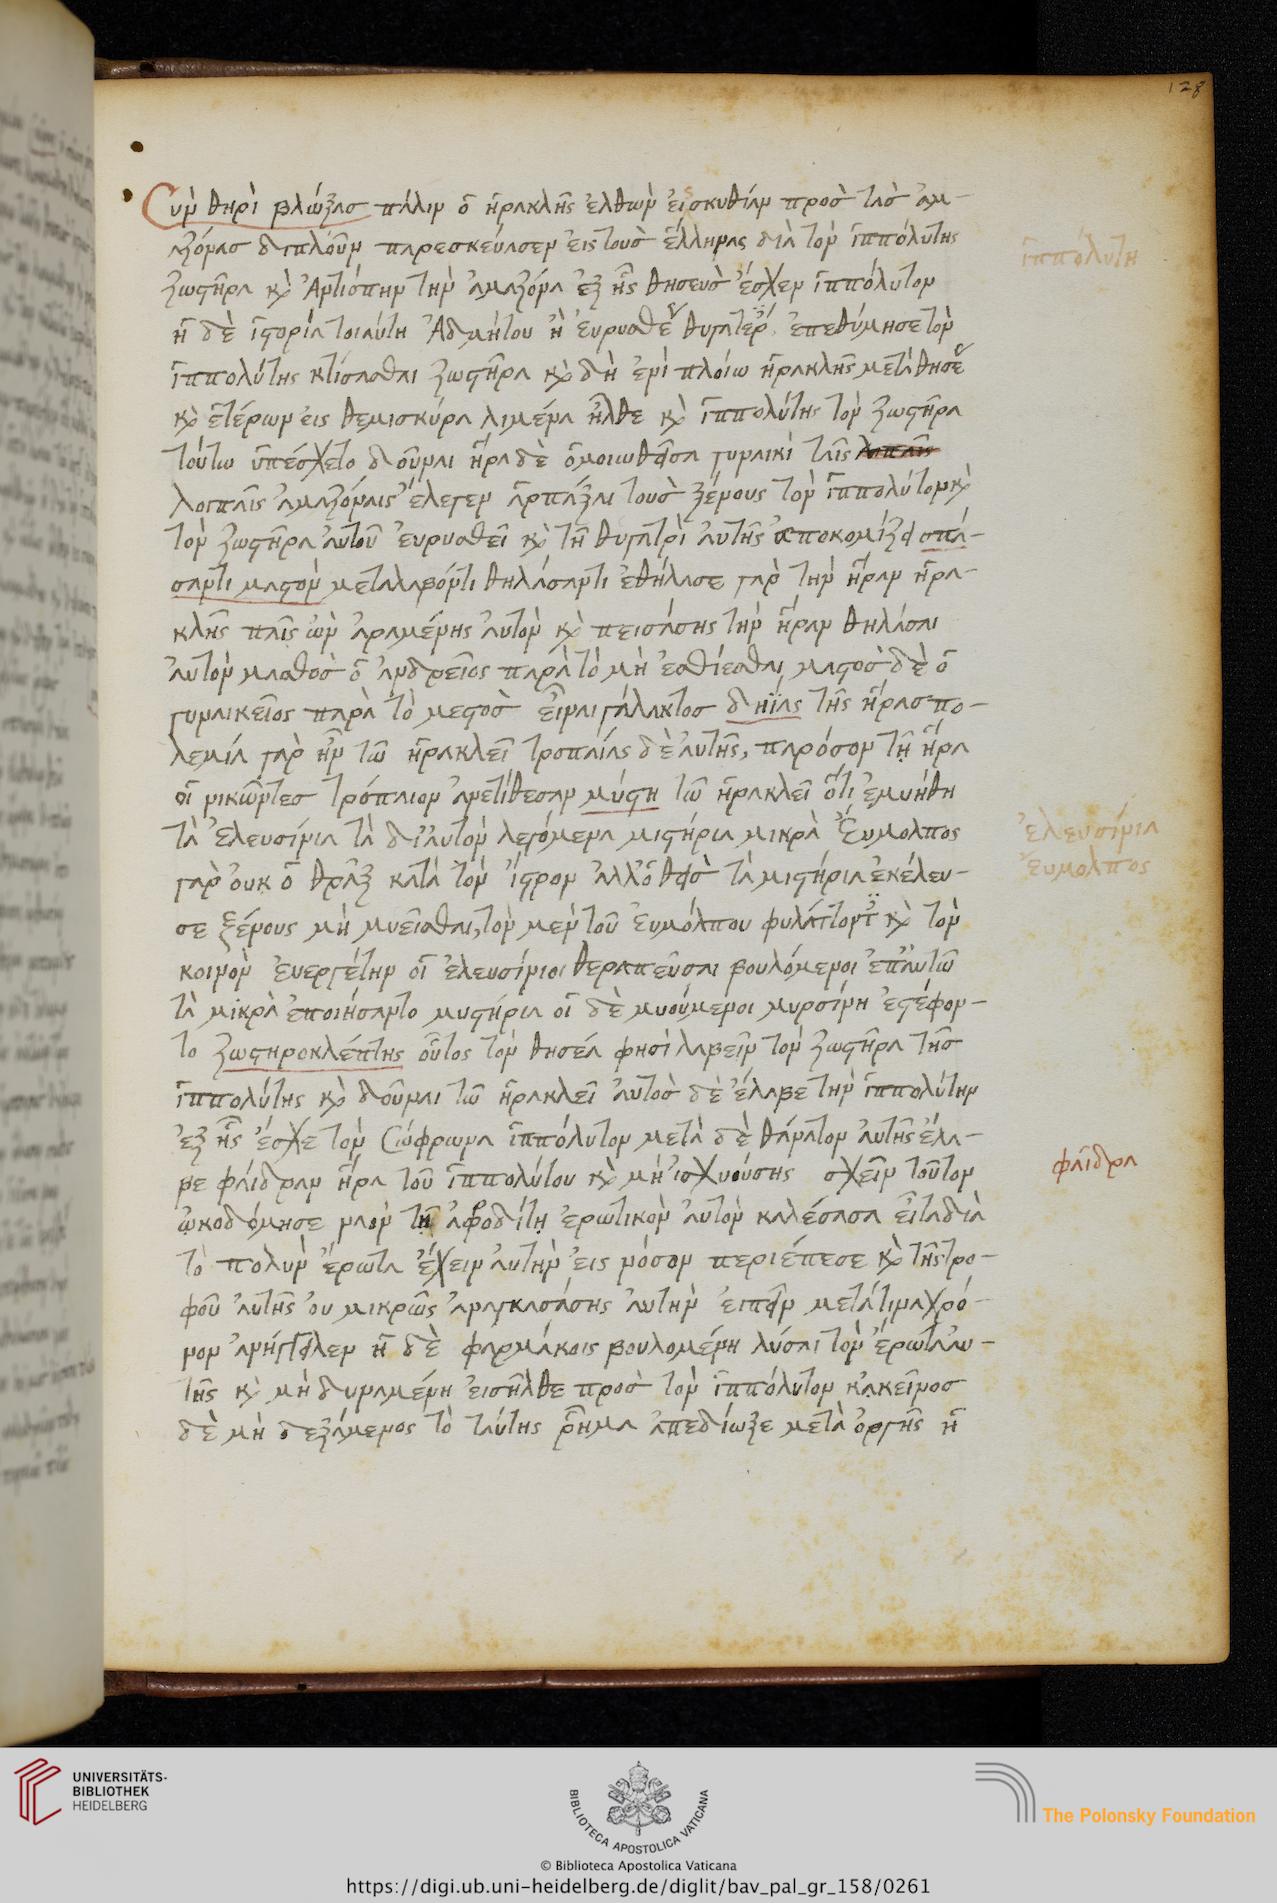 128
Σὺν θηρὶ βλώξας πάλιν ὁ ἡρακλῆς ἐλθὼν εἰς σκυθίαν πρὸς τὰς ἀμ-
αζόνας διπλοῦν παρεσκεύασεν εἰς τοὺς ἕλληνας διὰ τὸν ἱππολύτης
ἱππολύτη
ζωστῆρα κỳ Ἀντιόπην τὴν ἀμαζόνα ἐξ ἧς θησεὺς ἔσχεν ἱππόλυτον
ἡ δὲ ἱστορία τοιαύτη Ἀδμήτου ἡ ἐυρυσθέ θυγατέρ ἐπεθύμησε τὸν
ἱππολύτης κτίσασθαι ζωστῆρα κỳ δὴ ἑνὶ πλοίω ἡρακλῆς μετὰ θησέ
κỳ ἑτέρων εἰς θεμισκύρα λιμένα ἦλθε κỳ ἱππολύτης τὸν ζωστῆρα
τούτω ὑπέσχετο δοῦναι ἥρα δὲ ὁμοιωθεῖσα γυναικὶ ταῖς
λοιπαῖς ἀμαζόναις ἔλεγεν ἁρπάξαι τοὺς ξένους τὸν ἱππολύτον κỳ
τὸν ζωστῆρα ἀυτοῦ ἐυρυσθεῖ κỳ τῆ θυγατρὶ ἀυτῆς ἀποκομίζει σπά-
σαντι μαστὸν μεταλαβόντι θηλάσαντι ἐθήλασε γὰρ τὴν ἥραν ἡρα-
κλῆς παῖς ὢν ἀραμένης ἀυτὸν κỳ πεισάσης τὴν ἥραν θηλάσαι
ἀυτὸν μασθὸς ὁ ἀνδρεῖος παρὰ τὸ μὴ ἐσθίεσθαι, μαστὸς δὲ ὁ
γυναικεῖος παρὰ τὸ μεστὸς εἶναι γάλακτος δηΐας τῆς ἥρας πο-
λεμία γὰρ ἦν τῶ ἡρακλεῖ τροπαίας δὲ ἀυτῆς, παρόσον τῆ ἥρα
οἱ νικῶντες τρόπαιον ἀνετίθεσαν μύστη τῶ ἡρακλεῖ ὅτι ἐμυήθη
τὰ ἐλευσίνια τὰ δι' ἀυτὸν λεγόμενα μιστήρια μικρὰ Ἔυμολπος
ἐλευσίνια
ἔυμολπος
γὰρ ὀυκ ὁ θρᾶξ κατὰ τὸν ἴστρον ἀλλ' ὁ θεὶς τὰ μιστήρια ἐκέλευ-
σε ξένους μὴ μυεῖσθαι, τὸν μὲν τοῦ ἐυμόλπου φυλάττοντ κỳ τὸν
κοινὸν ἐυεργέτην οἱ ἐλευσίνιοι θεραπεῦσαι βουλόμενοι ἐπ' ἀυτῶ
τὰ μικρὰ ἐποιήσαντο μυστήρια οἱ δὲ μυούμενοι μυρσίνη ἐστέφον-
το ζωστηροκλέπτης οὗτος τὸν θησέα φησὶ λαβεῖν τὸν ζωστῆρα τῆς
ἱππολύτης κỳ δοῦναι τῶ ἡρακλεῖ ἀυτὸς δὲ ἔλαβε τὴν ἱππολύτην
ἐξ ἧς ἔσχε τὸν Σώφρωνα ἱππόλυτον μετὰ δὲ θάνατον ἀυτῆς ἔλα-
βε φαίδραν ἥρα τοῦ ἱππολύτου κỳ μὴ ἰσχυούσης σχεῖν τοῦτον
φαῖδρα
ᾠκοδόμησε ναὸν τῇ ἀφροδίτῃ ἐρωτικὸν ἀυτὸν καλέσασα εἶτα διὰ
τὸ πολὺν ἔρωτα ἔχειν ἀυτὴν εἰς νόσον περιέπεσε κỳ τῆς τρο-
φοῦ ἀυτῆς ὀυ μικρῶς ἀναγκασάσης ἀυτὴν ἐιπεῖν μετά τινα χρό-
νον ἀνήγγειλεν ἡ δὲ φαρμάκοις βουλομένη λύσαι τὸν ἔρωτα ἀυ-
τῆς κỳ μὴ δυναμένη εἰσῆλθε πρὸς τὸν ἱππόλυτον κἀκεῖνος
δὲ μὴ δεξάμενος τὸ ταύτης ῥῆμα ἀπεδίωξε μετὰ ὀργῆς ἡ
UNIVERSITÄTS-
BIBLIOTHEK
HEIDELBERG
BIBLIOTECA APOSTOLICA VATICANA
The Polonsky Foundation
© Biblioteca Apostolica Vaticana
https://digi.ub.uni-heidelberg.de/diglit/bav_pal_gr_158/0261